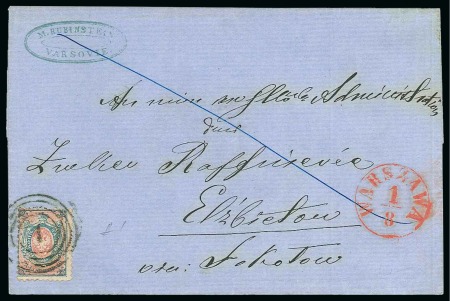 M. RUBINSTEIN
VARSOVIE
An eine wohllöbl. Administration
der
Zucker Raffinerie
Elżbietow
per: Sokolow
WARSZAWA
1
8